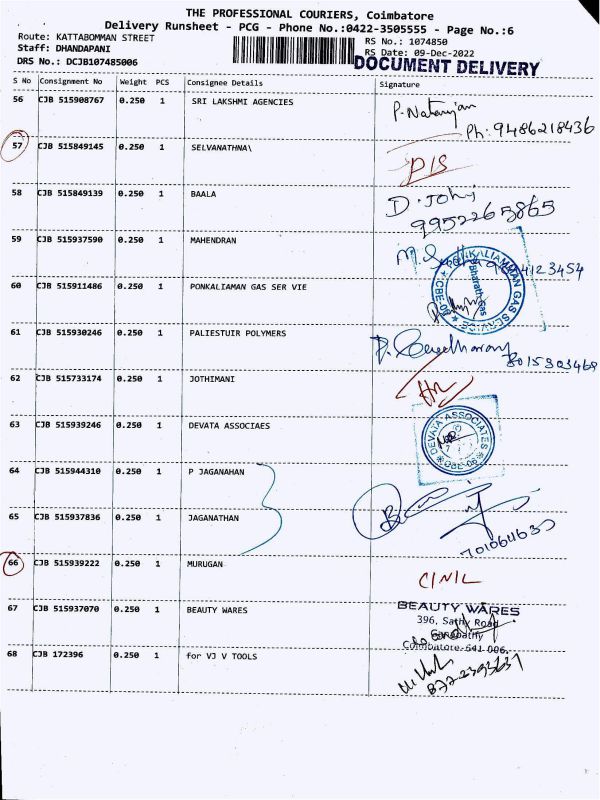 THE PROFESSIONAL COURIERS, Coimbatore
Delivery Runsheet - PCG - Phone No.:0422-3505555 - Page No.:6
Route: KATTABOMMAN STREET
RS No.: 1074850
Staff: DHANDAPANI
RS Date: 09-Dec-2022
DRS No.: DCJB107485006
DOCUMENT DELIVERY
S No Consignment No Weight PCS Consignee Details Signature
56 CJB 515908767 0.250 1 SRI LAKSHMI AGENCIES P. Natarajan
Ph: 9486218436
57 CJB 515849145 0.250 1 SELVANATHNA\ D/S
58 CJB 515849139 0.250 1 BAALA D. John
9952265865
59 CJB 515937590 0.250 1 MAHENDRAN
60 CJB 515911486 0.250 1 PONKALIAMAN GAS SER VIE
PONKALIAMMAN GAS SERVICE
Bharath Gas
61 CJB 515930246 0.250 1 PALIESTUIR POLYMERS
8015303469
62 CJB 515733174 0.250 1 JOTHIMANI
63 CJB 515939246 0.250 1 DEVATA ASSOCIAES
DEVATA ASSOCIATES
64 CJB 515944310 0.250 1 P JAGANAHAN
65 CJB 515937836 0.250 1 JAGANATHAN
66 CJB 515939222 0.250 1 MURUGAN C/NIL
67 CJB 515937070 0.250 1 BEAUTY WARES
BEAUTY WARES
396, Sathy Road
Ganapathy
Coimbatore-641 006.
68 CJB 172396 0.250 1 for VJ V TOOLS